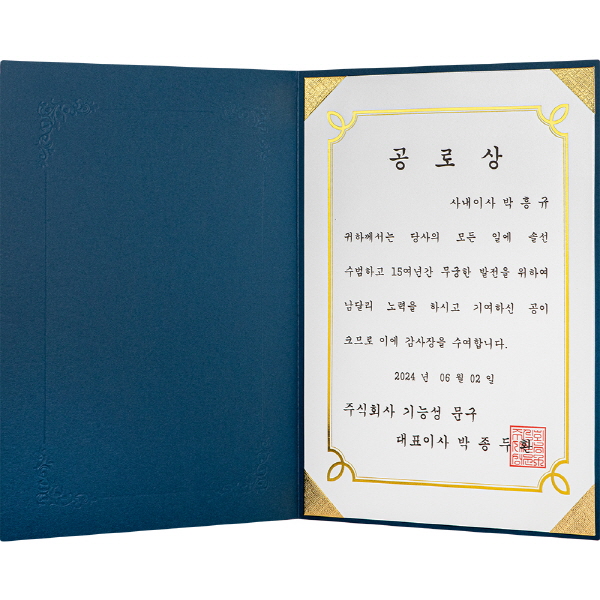 공 로 상
사내이사 박 홍 규
귀하께서는 당사의 모든 일에 솔선
수범하고 15여년간 무궁한 발전을 위하여
남달리 노력을 하시고 기여하신 공이
크므로 이에 감사장을 수여합니다.
2024 년 06 월 02 일
주식회사 기능성 문구
대표이사 박 종 두 환